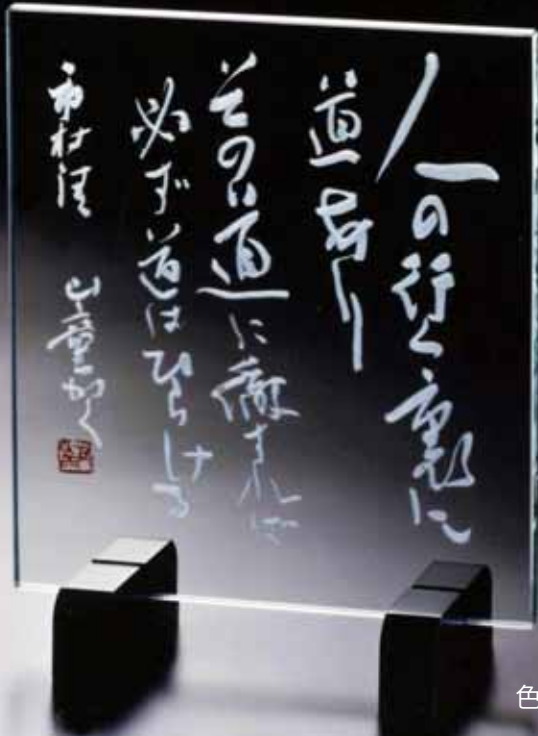 人の行く裏に
道あり
その道に徹すれば
必ず道はひらける
市村清
山童かく
色